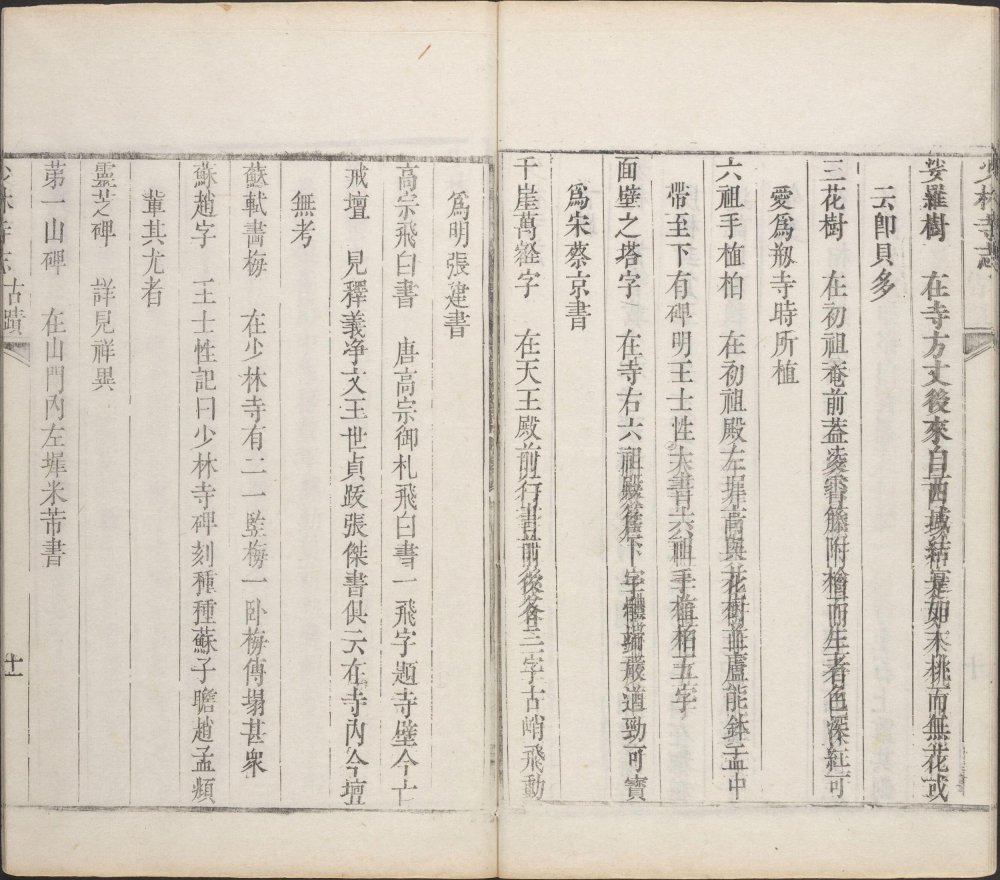 少林寺志
娑羅樹　在寺方丈後來自西域結實如木桃而無花或
云卽貝多
三花樹　在初祖菴前葢凌霄籐附檜而生者色深紅可
愛爲剏寺時所植
六祖手植柏　在初祖殿左墀高與花樹並盧能鉢盂中
帶至下有碑明王士性大書六祖手植柏五字
面壁之塔字　在寺右六祖殿簷下字體端嚴遒勁可寶
爲宋蔡京書
千崖萬壑字　在天王殿前行書前後各三字古峭飛動
爲明張建書
高宗飛白書　唐高宗御札飛白書一飛字題寺壁今亡
戒壇　見釋義净文王世貞跋張傑書俱云在寺內今壇
無考
蘇軾畵梅　在少林寺有二一豎梅一卧梅傳塌甚衆
蘇趙字　王士性記曰少林寺碑刻種種蘇子瞻趙孟頫
軰其尤者
靈芝碑　詳見祥異
苐一山碑　在山門內左墀米芾書
少林寺志　古蹟　十一